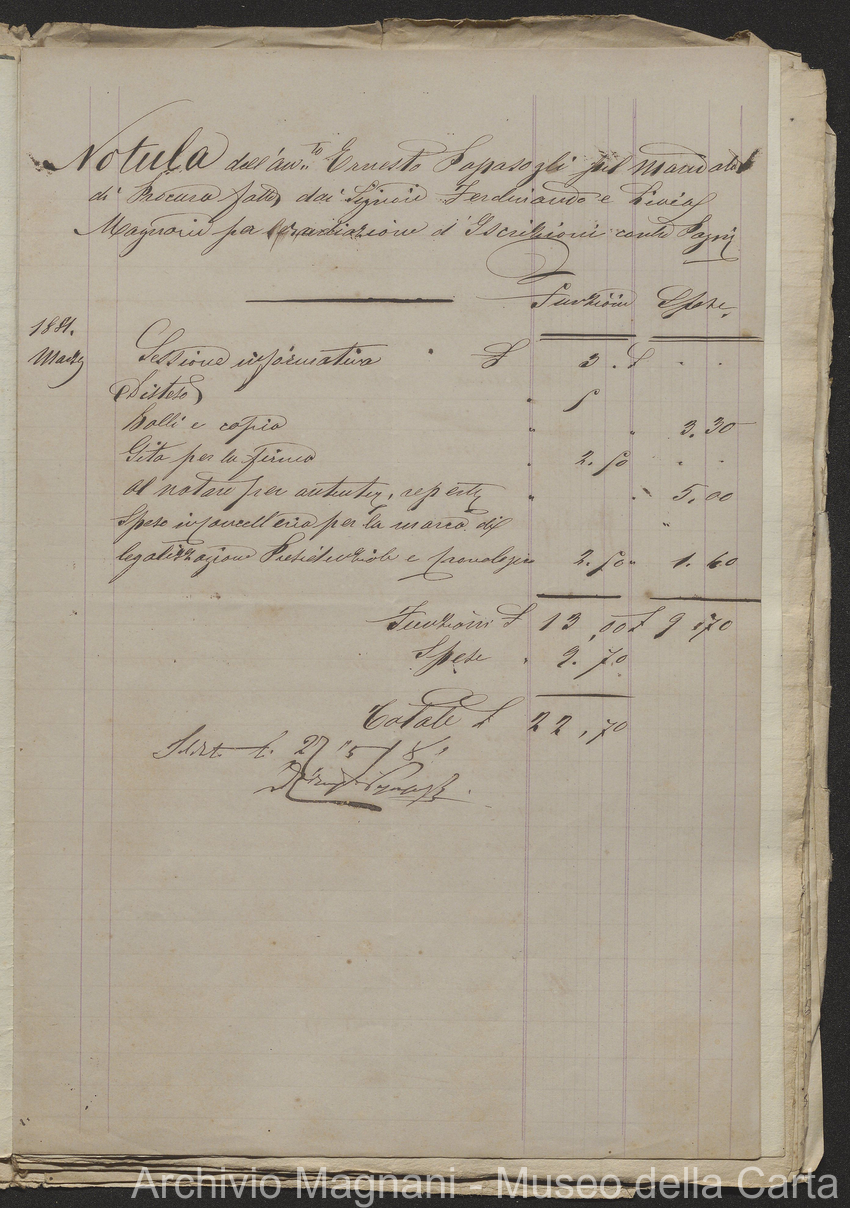 Notula dell'avv.to Ernesto Papasogli pel Mandato
di Procura fatto dai Signori Ferdinando e Livia
Magnani per d'Iscrizioni contro Pagni
Funzioni Spese
1881.
Marzo Sessione informativa £ 3. £ . .
Disteso " 5
Bolli e copia " " 3. 30
Gita per la firma " 2. 50 . .
Al notaro per autentic, repert " " 5. 00
Spese in cancelleria per la marca di "
legalizzazione Presidenziale e 2. 50 " 1. 40
Funzioni £ 13 ,00 £ 9 ,70
Spese " 9. 70
Totale £ 22 ,70
27
Archivio Magnani - Museo della Carta